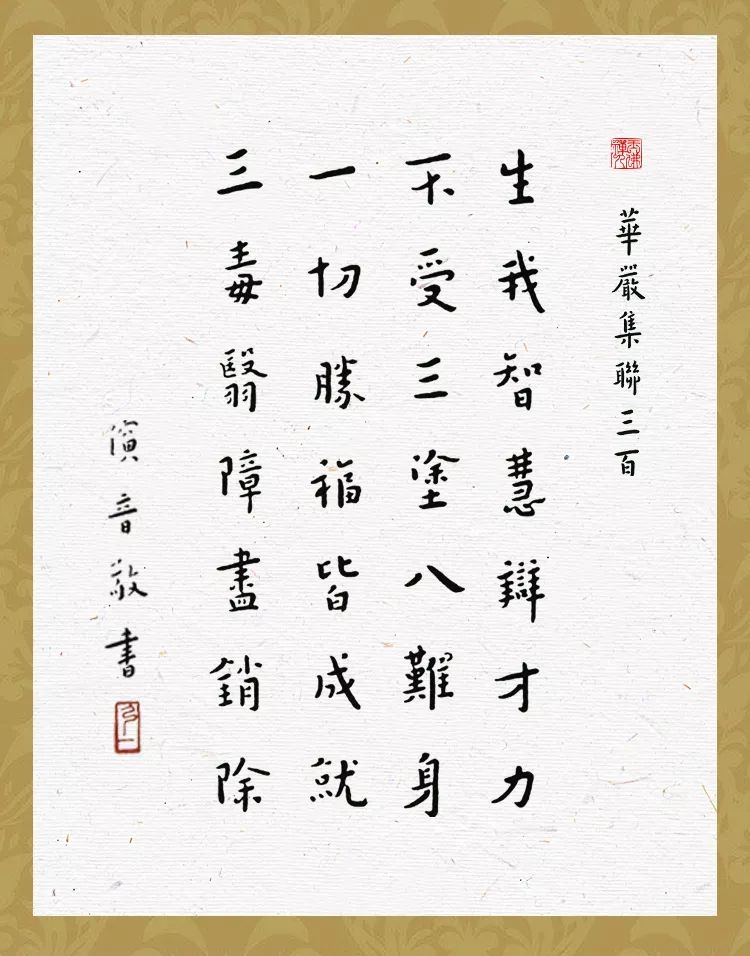 華嚴集聯三百
生我智慧辯才力
不受三塗八難身
一切勝福皆成就
三毒翳障盡銷除
演音敬書